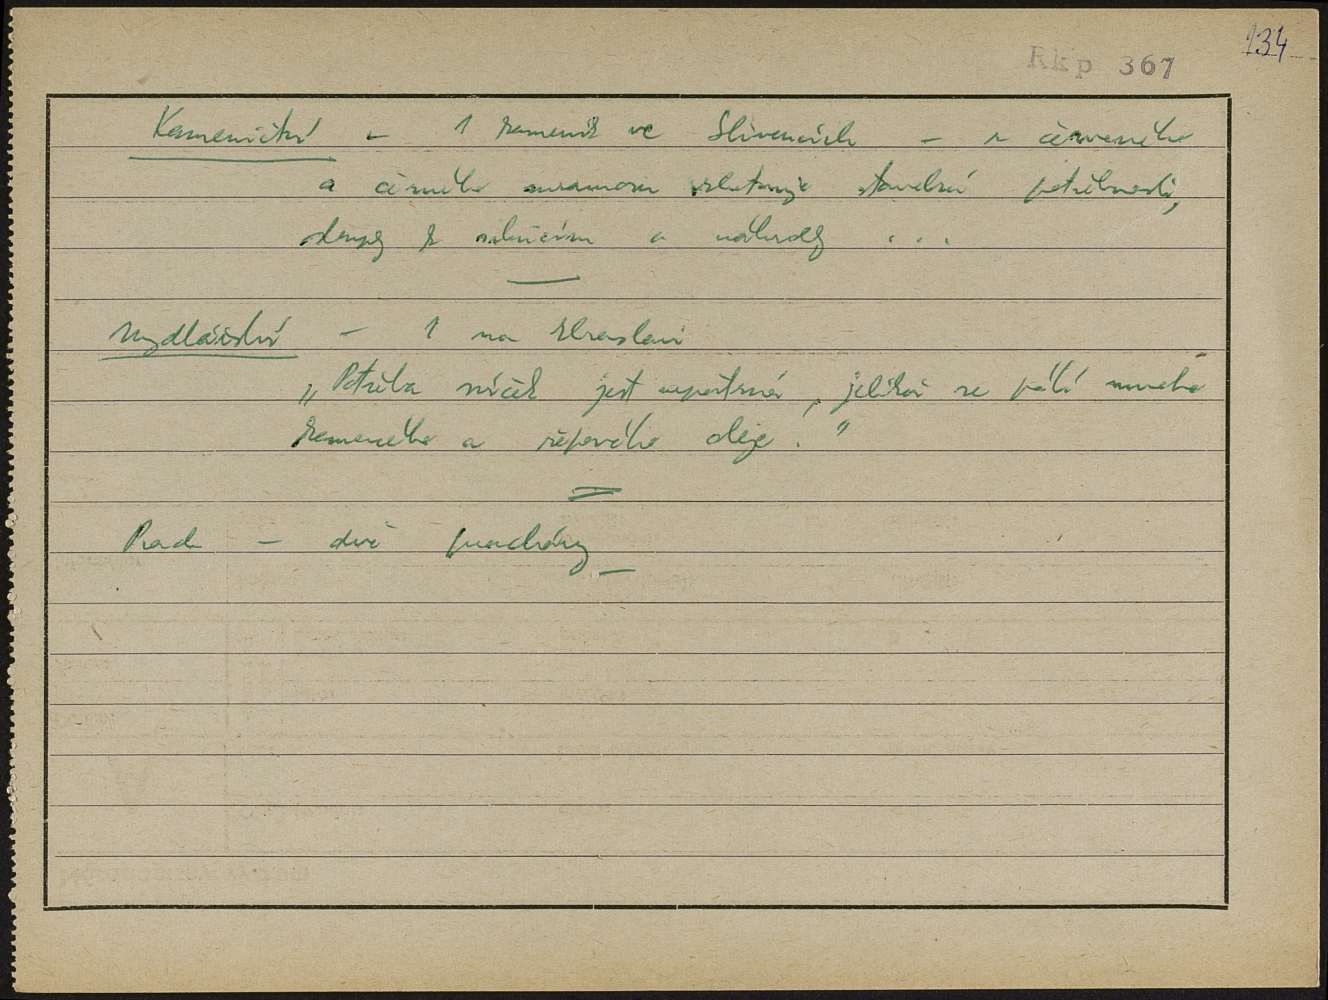 134
Rkp 367
Kamenictví – 1 kameník ve Slivencích – z červeného
a černého mramoru zhotovuje stavební potřebnosti,
sloupy k silnicím a náhrobky ...
Mydlářství – 1 na Zbraslavi
„Potřeba svíček jest nepatrná, jelikož se pálí mnoho
kamenného a řepového oleje."
– dvě